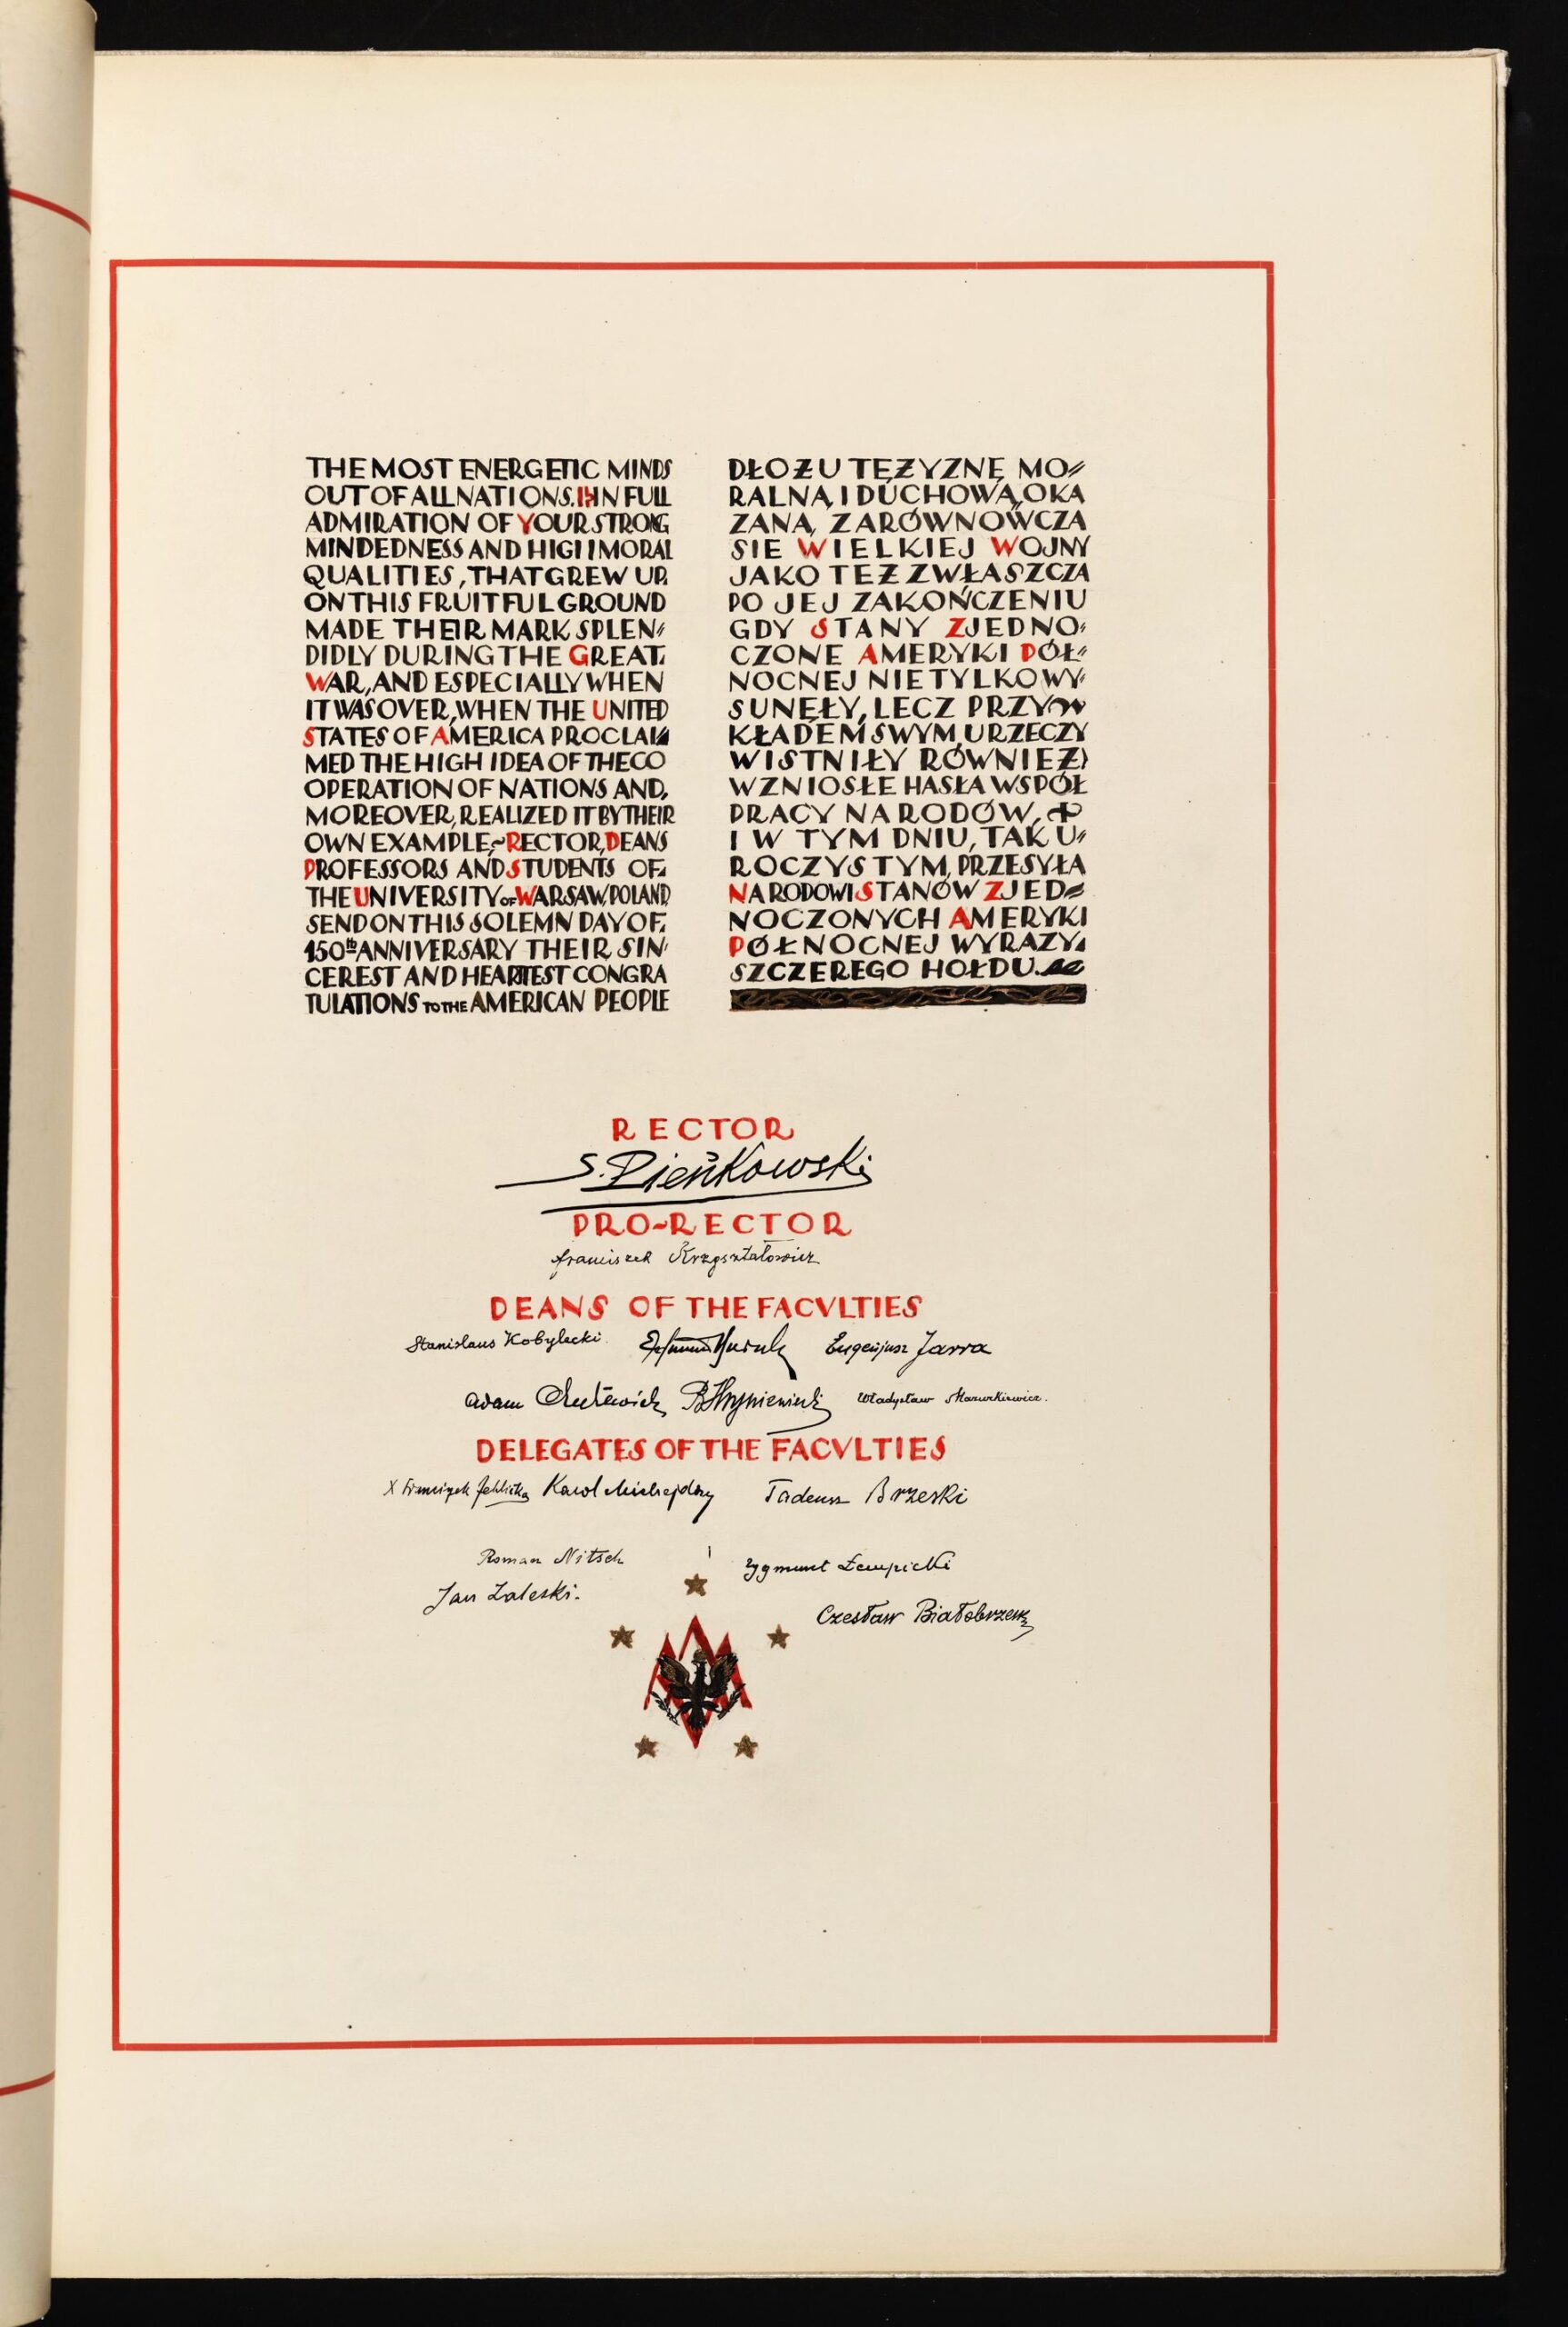 THE MOST ENERGETIC MINDS
OUT OF ALL NATIONS. IN FULL
ADMIRATION OF YOUR STRONG
MINDEDNESS AND HIGH MORAL
QUALITIES, THAT GREW UP
ON THIS FRUITFUL GROUND
MADE THEIR MARK SPLEN-
DIDLY DURING THE GREAT
WAR, AND ESPECIALLY WHEN
IT WAS OVER, WHEN THE UNITED
STATES OF AMERICA PROCLAI
MED THE HIGH IDEA OF THE CO
OPERATION OF NATIONS AND,
MOREOVER, REALIZED IT BY THEIR
OWN EXAMPLE,~RECTOR, DEANS
PROFESSORS AND STUDENTS OF
THE UNIVERSITY OF WARSAW, POLAND
SEND ON THIS SOLEMN DAY OF
150th ANNIVERSARY THEIR SIN-
CEREST AND HEARTIEST CONGRA
TULATIONS TO THE AMERICAN PEOPLE
DŁOŻU TĘŻYZNĘ MO-
RALNĄ I DUCHOWĄ, OKA
ZANĄ ZARÓWNO W CZA
SIE WIELKIEJ WOJNY
JAKO TEŻ ZWŁASZCZA
PO JEJ ZAKOŃCZENIU
GDY STANY ZJEDNO-
CZONE AMERYKI PÓŁ-
NOCNEJ NIETYLKO WY-
SUNĘŁY, LECZ PRZY
KŁADEM SWYM URZECZY
WISTNIŁY RÓWNIEŻ
WZNIOSŁE HASŁA WSPÓŁ
PRACY NARODÓW,
I W TYM DNIU, TAK U-
ROCZYSTYM, PRZESYŁA
NARODOWI STANÓW ZJED-
NOCZONYCH AMERYKI
PÓŁNOCNEJ WYRAZY
SZCZEREGO HOŁDU.
RECTOR
S. Pieńkowski
PRO-RECTOR
Franciszek Krzyształowicz
DEANS OF THE FACVLTIES
Stanislaus Kobyłecki Eugenjusz Jarra
Adam B Hryniewiecki Władysław Mazurkiewicz.
DELEGATES OF THE FACVLTIES
X Franciszek Jehlička Karol Michejda Tadeusz Brzeski
Roman Nitsch Zygmunt Łempicki
Jan Zaleski.
Czesław Białobrzeski